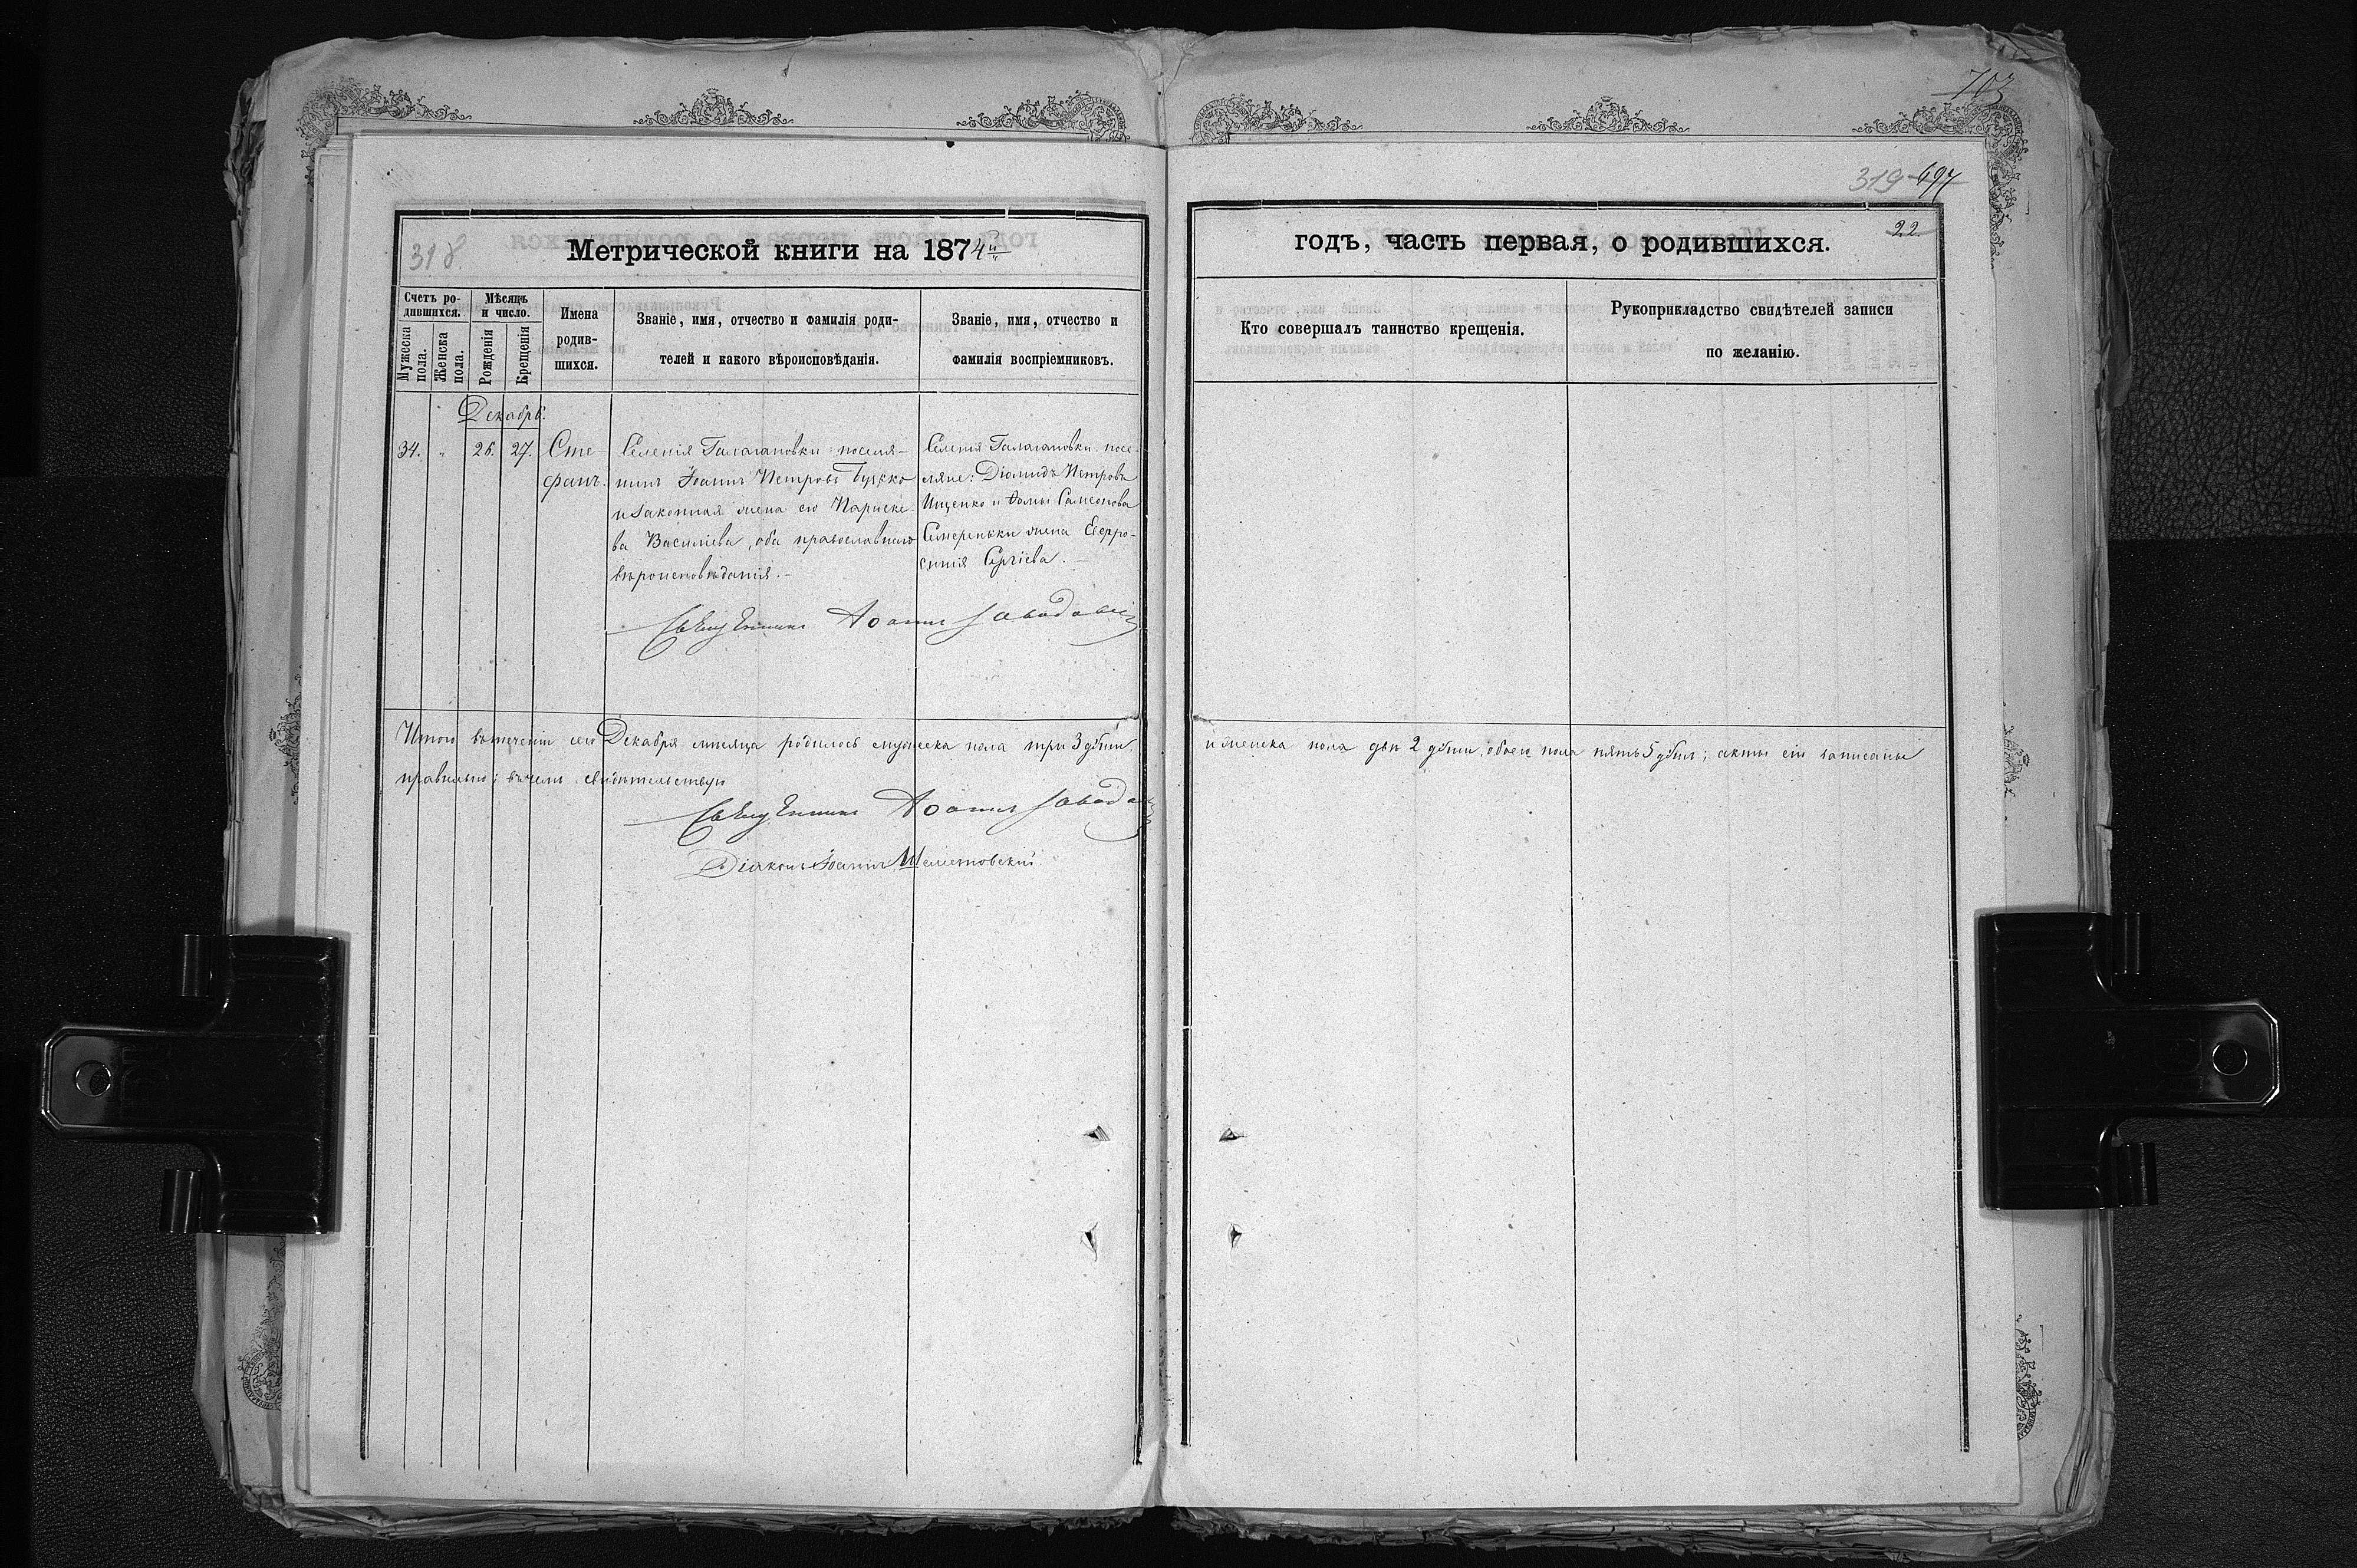 703
319 697
22
318.
Метрической книги на 1874й
годъ, часть первая, о родившихся.
Счетъ ро-
дившихся.
Мужеска
пола.
Женска
пола.
Мѣсяцъ
и число.
Рожденія
Крещенія
Имена
родив-
шихся.
Званіе, имя, отчество и фамилія роди-
телей и какого вѣроисповѣданія.
Званіе, имя, отчество и
фамилія воспріемниковъ.
Кто совершалъ таинство крещенія.
Рукоприкладство свидѣтелей записи
по желанію.
Декабрь.
34. " 26. 27. Сте-
фанъ.
Селенія Галагановки поселя-
нинъ Іоаннъ Петровъ
и законная жена его Параске-
ва Василіева, оба православнаго
вѣроисповѣданія.-
Селенія Галагановки посе-
ляне: Діомидъ Петровъ
Ищенко и Ѳомы Самсонова
Семеренки жена Евфро-
синія Сергіева.-
Священникъ Іоаннъ Заводовскій
Итого въ теченіи сего Декабря мѣсяца родилось мужеска пола три 3 души
и женска пола двѣ 2 души, обоего пола пять 5 душъ; акты сіи записаны
правильно; въ чемъ свидѣтельствую
Священникъ Іоаннъ
Діаконъ Іоаннъ Шелестовскій